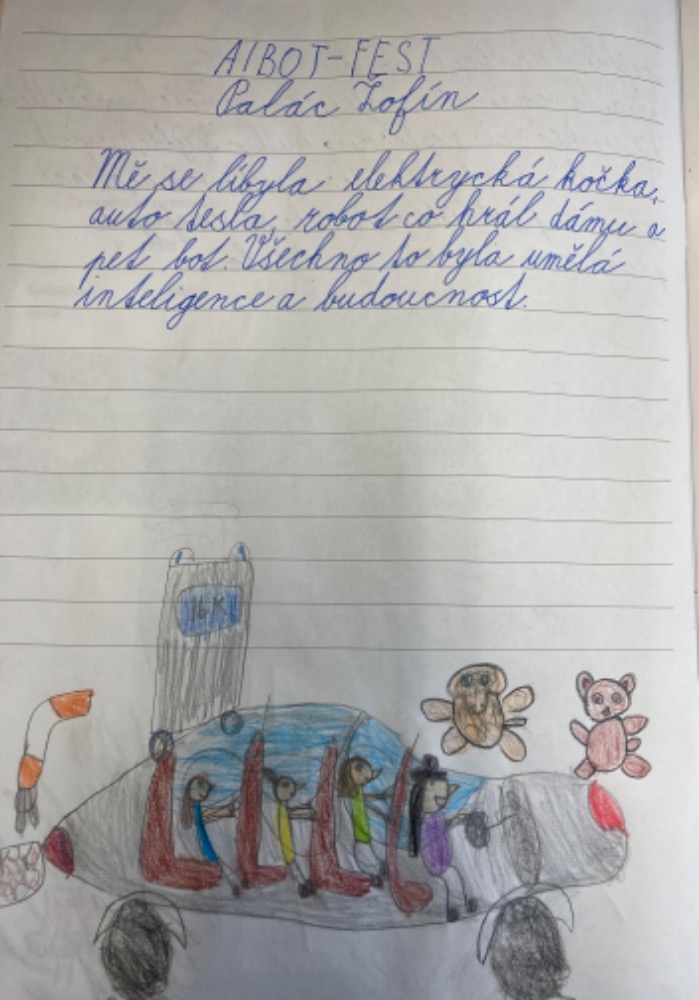 AIBOT-FEST
Palác Žofín
Mě se líbyla elektrycká kočka,
auto tesla, robot co hrál dámu a
pet bot. Všechno to byla umělá
inteligence a budoucnost.
16K